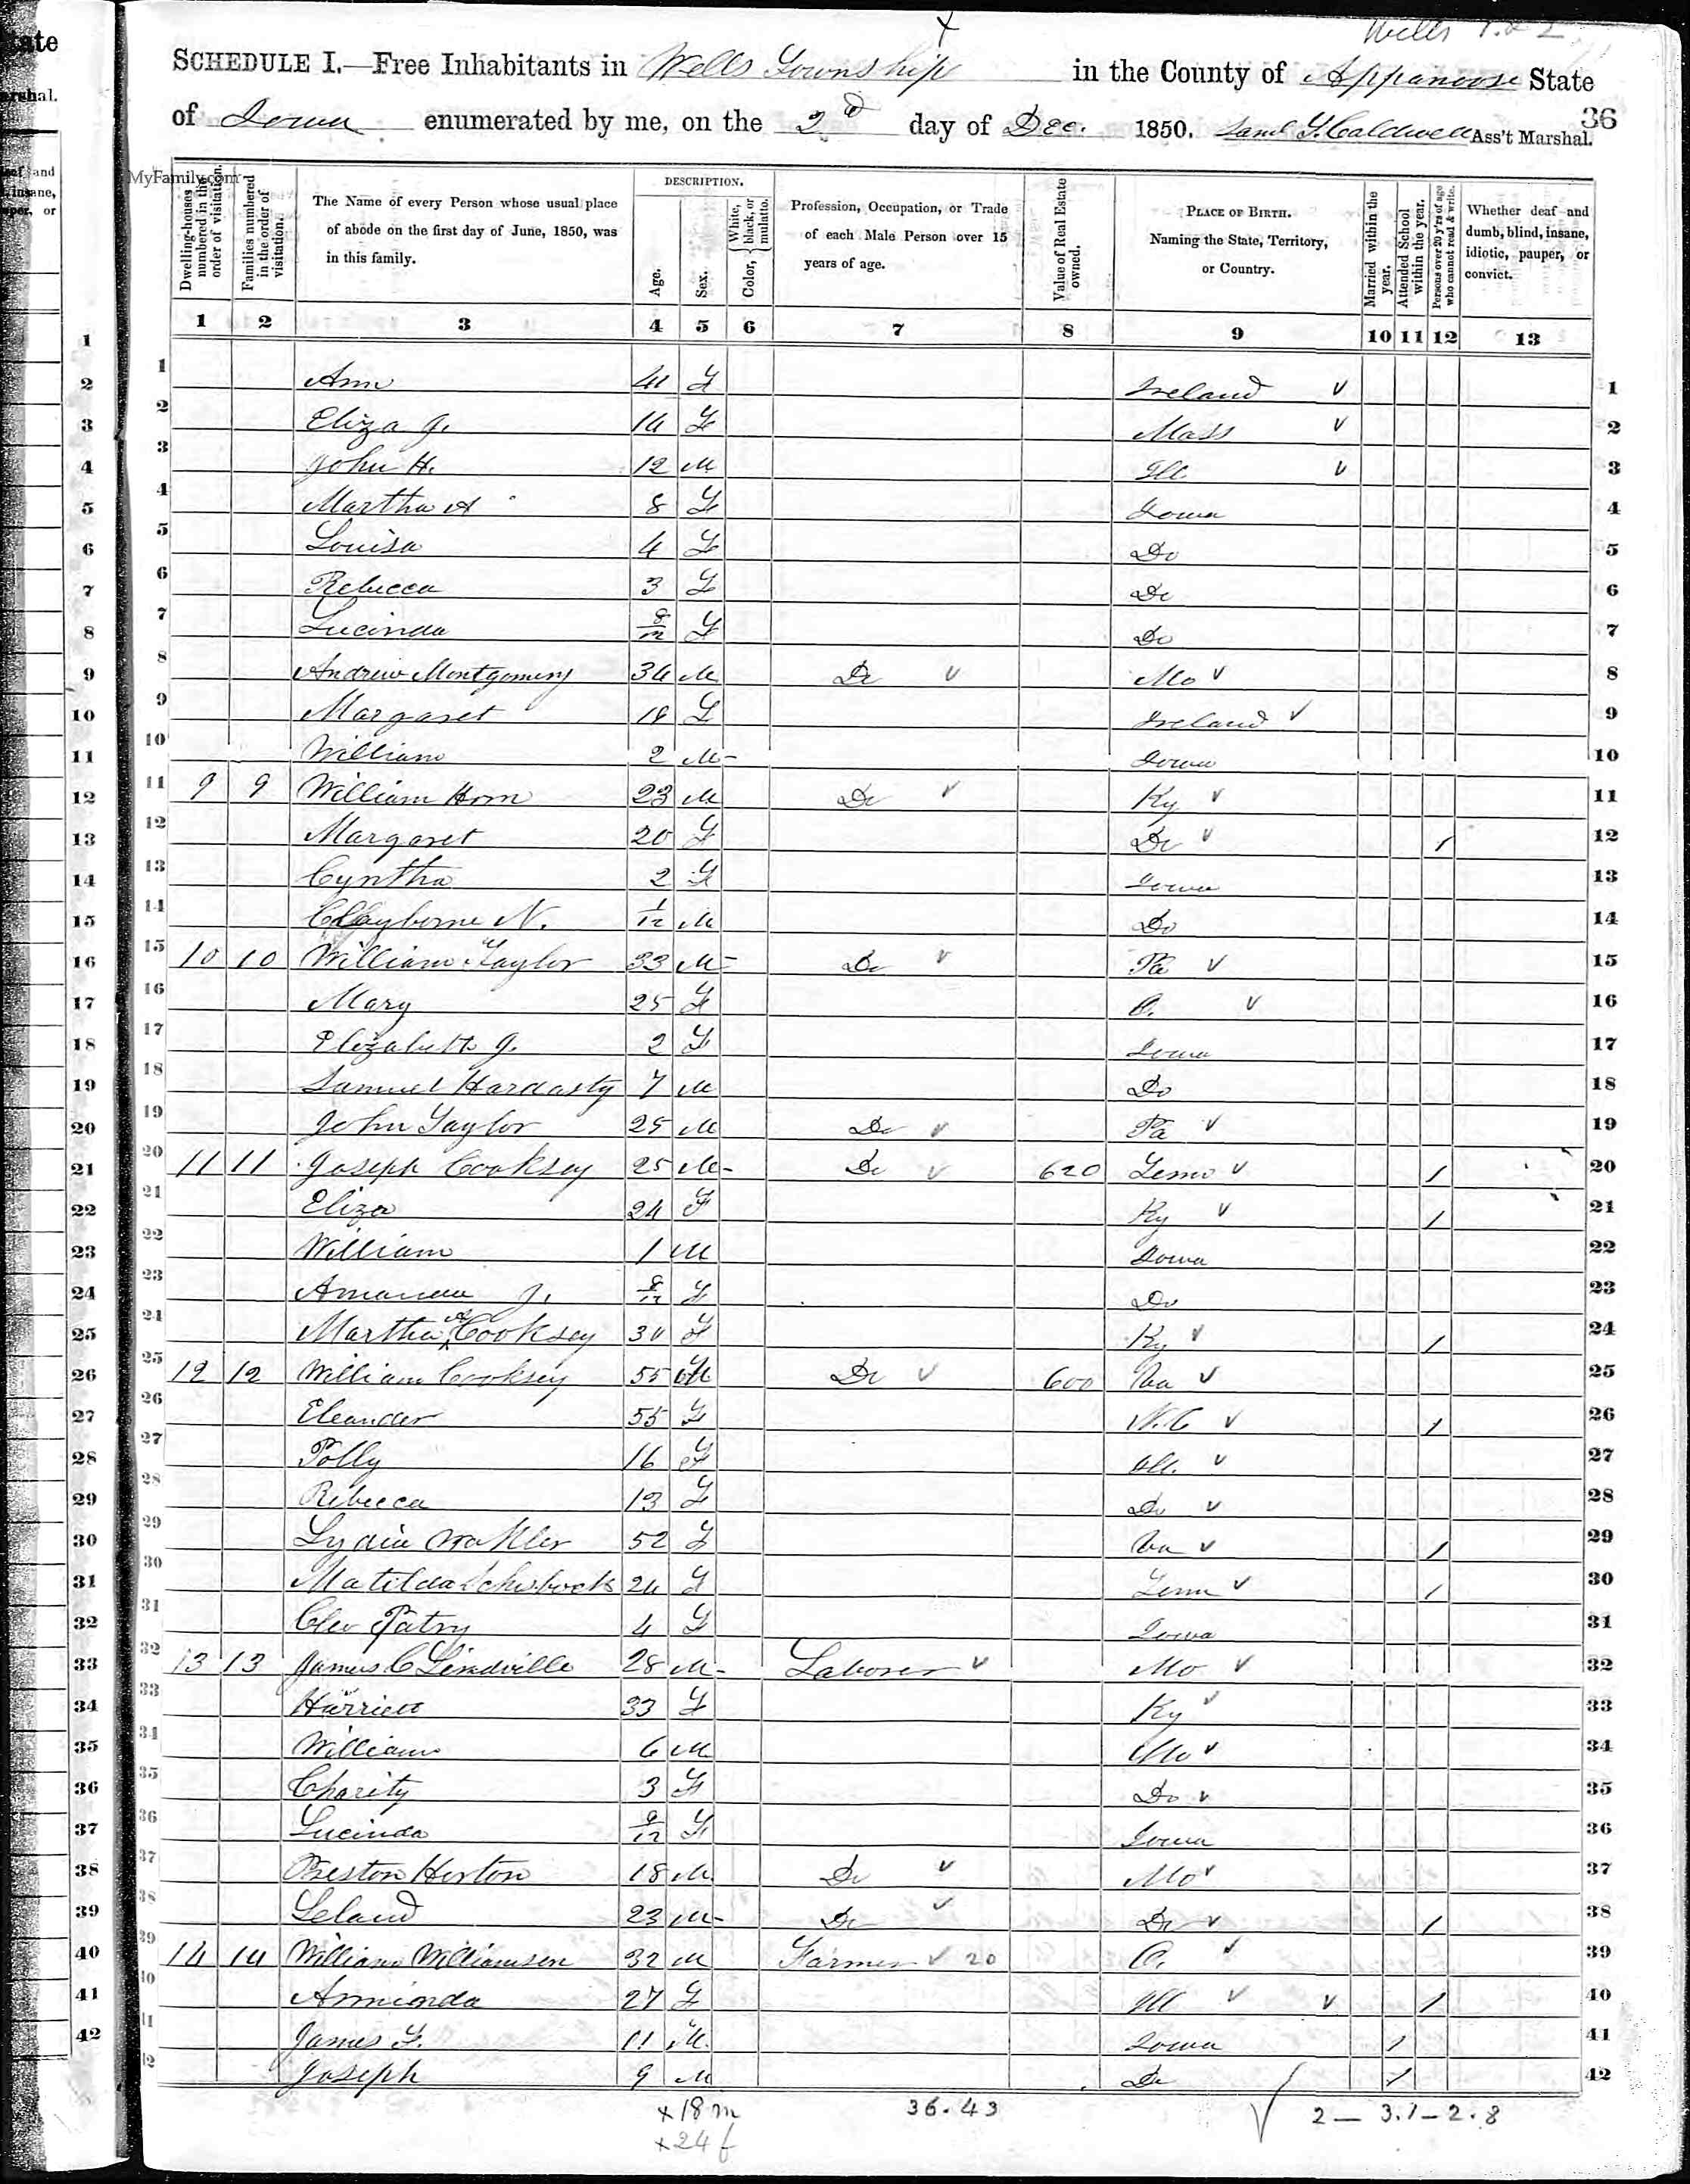 Wells
SCHEDULE I.—Free Inhabitants in Wells Township in the County of Appanoose State
of Iowa enumerated by me, on the 2d day of Dec. 1850. Saml Y. Caldwell Ass't Marshal.
36
MyFamily.com
Dwelling-houses numbered in the order of visitation.
Families numbered in the order of visitation.
The Name of every Person whose usual place of abode on the first day of June, 1850, was in this family.
DESCRIPTION.
Age.
Sex.
Color, White, black, or mulatto.
Profession, Occupation, or Trade of each Male Person over 15 years of age.
Value of Real Estate owned.
PLACE OF BIRTH. Naming the State, Territory, or Country.
Married within the year.
Attended School within the year.
Persons over 20 y'rs of age who cannot read & write.
Whether deaf and dumb, blind, insane, idiotic, pauper, or convict.
1 2 3 4 5 6 7 8 9 10 11 12 13
1 Ann F Ireland v 1
2 Eliza J. 14 F Mass v 2
3 John H. 12 M Ill v 3
4 Martha A 8 F Iowa 4
5 Louisa 4 F Do 5
6 Rebecca 3 F Do 6
7 Lucinda 8/12 F Do 7
8 Andrew Montgomery 34 M Do v Mo v 8
9 Margaret 18 F Ireland v 9
10 William 2 M Iowa 10
11 9 9 William Horn 23 M Do v Ky v 11
12 Margaret 20 F Do v / 12
13 Cyntha 2 F Iowa 13
14 Clayborne N. 1/12 M Do 14
15 10 10 William Taylor 33 M Do v Pa v 15
16 Mary 25 F O. v 16
17 Elizabeth J. 2 F Iowa 17
18 Samuel Hardasty 7 M Do 18
19 John Taylor 25 M Do v Pa v 19
20 11 11 Joseph Cooksey 25 M Do v 620 Tenn v / 20
21 Eliza 24 F Ky v / 21
22 William 1 M Iowa 22
23 J. 8/12 F Do 23
24 Martha A Cooksey 30 F Ky v / 24
25 12 12 William Cooksey 55 M Do v 600 Va v 25
26 Eleander 55 F N.C v / 26
27 Polly 16 F Ill. v 27
28 Rebecca 13 F Do v 28
29 Lydia 52 F Va v / 29
30 Matilda 24 F Tenn v / 30
31 Cleo Patry 4 F Iowa 31
32 13 13 James C Lindville 28 M Laborer v Mo v 32
33 Harriett 33 F Ky v 33
34 William 6 M Mo v 34
35 Charity 3 F Do v 35
36 Lucinda 9/12 F Iowa 36
37 Preston Horton 18 M Do v Mo v 37
38 Leland 23 M Do v Do v / 38
39 14 14 William Williamson 32 M Farmer v 20 O. v 39
40 Arminda 27 F Ill v v / 40
41 James F. 11 M Iowa / 41
42 Joseph 9 M Do / 42
x 18 m 36.43 2 — 3.1 — 2.8
x 24 f